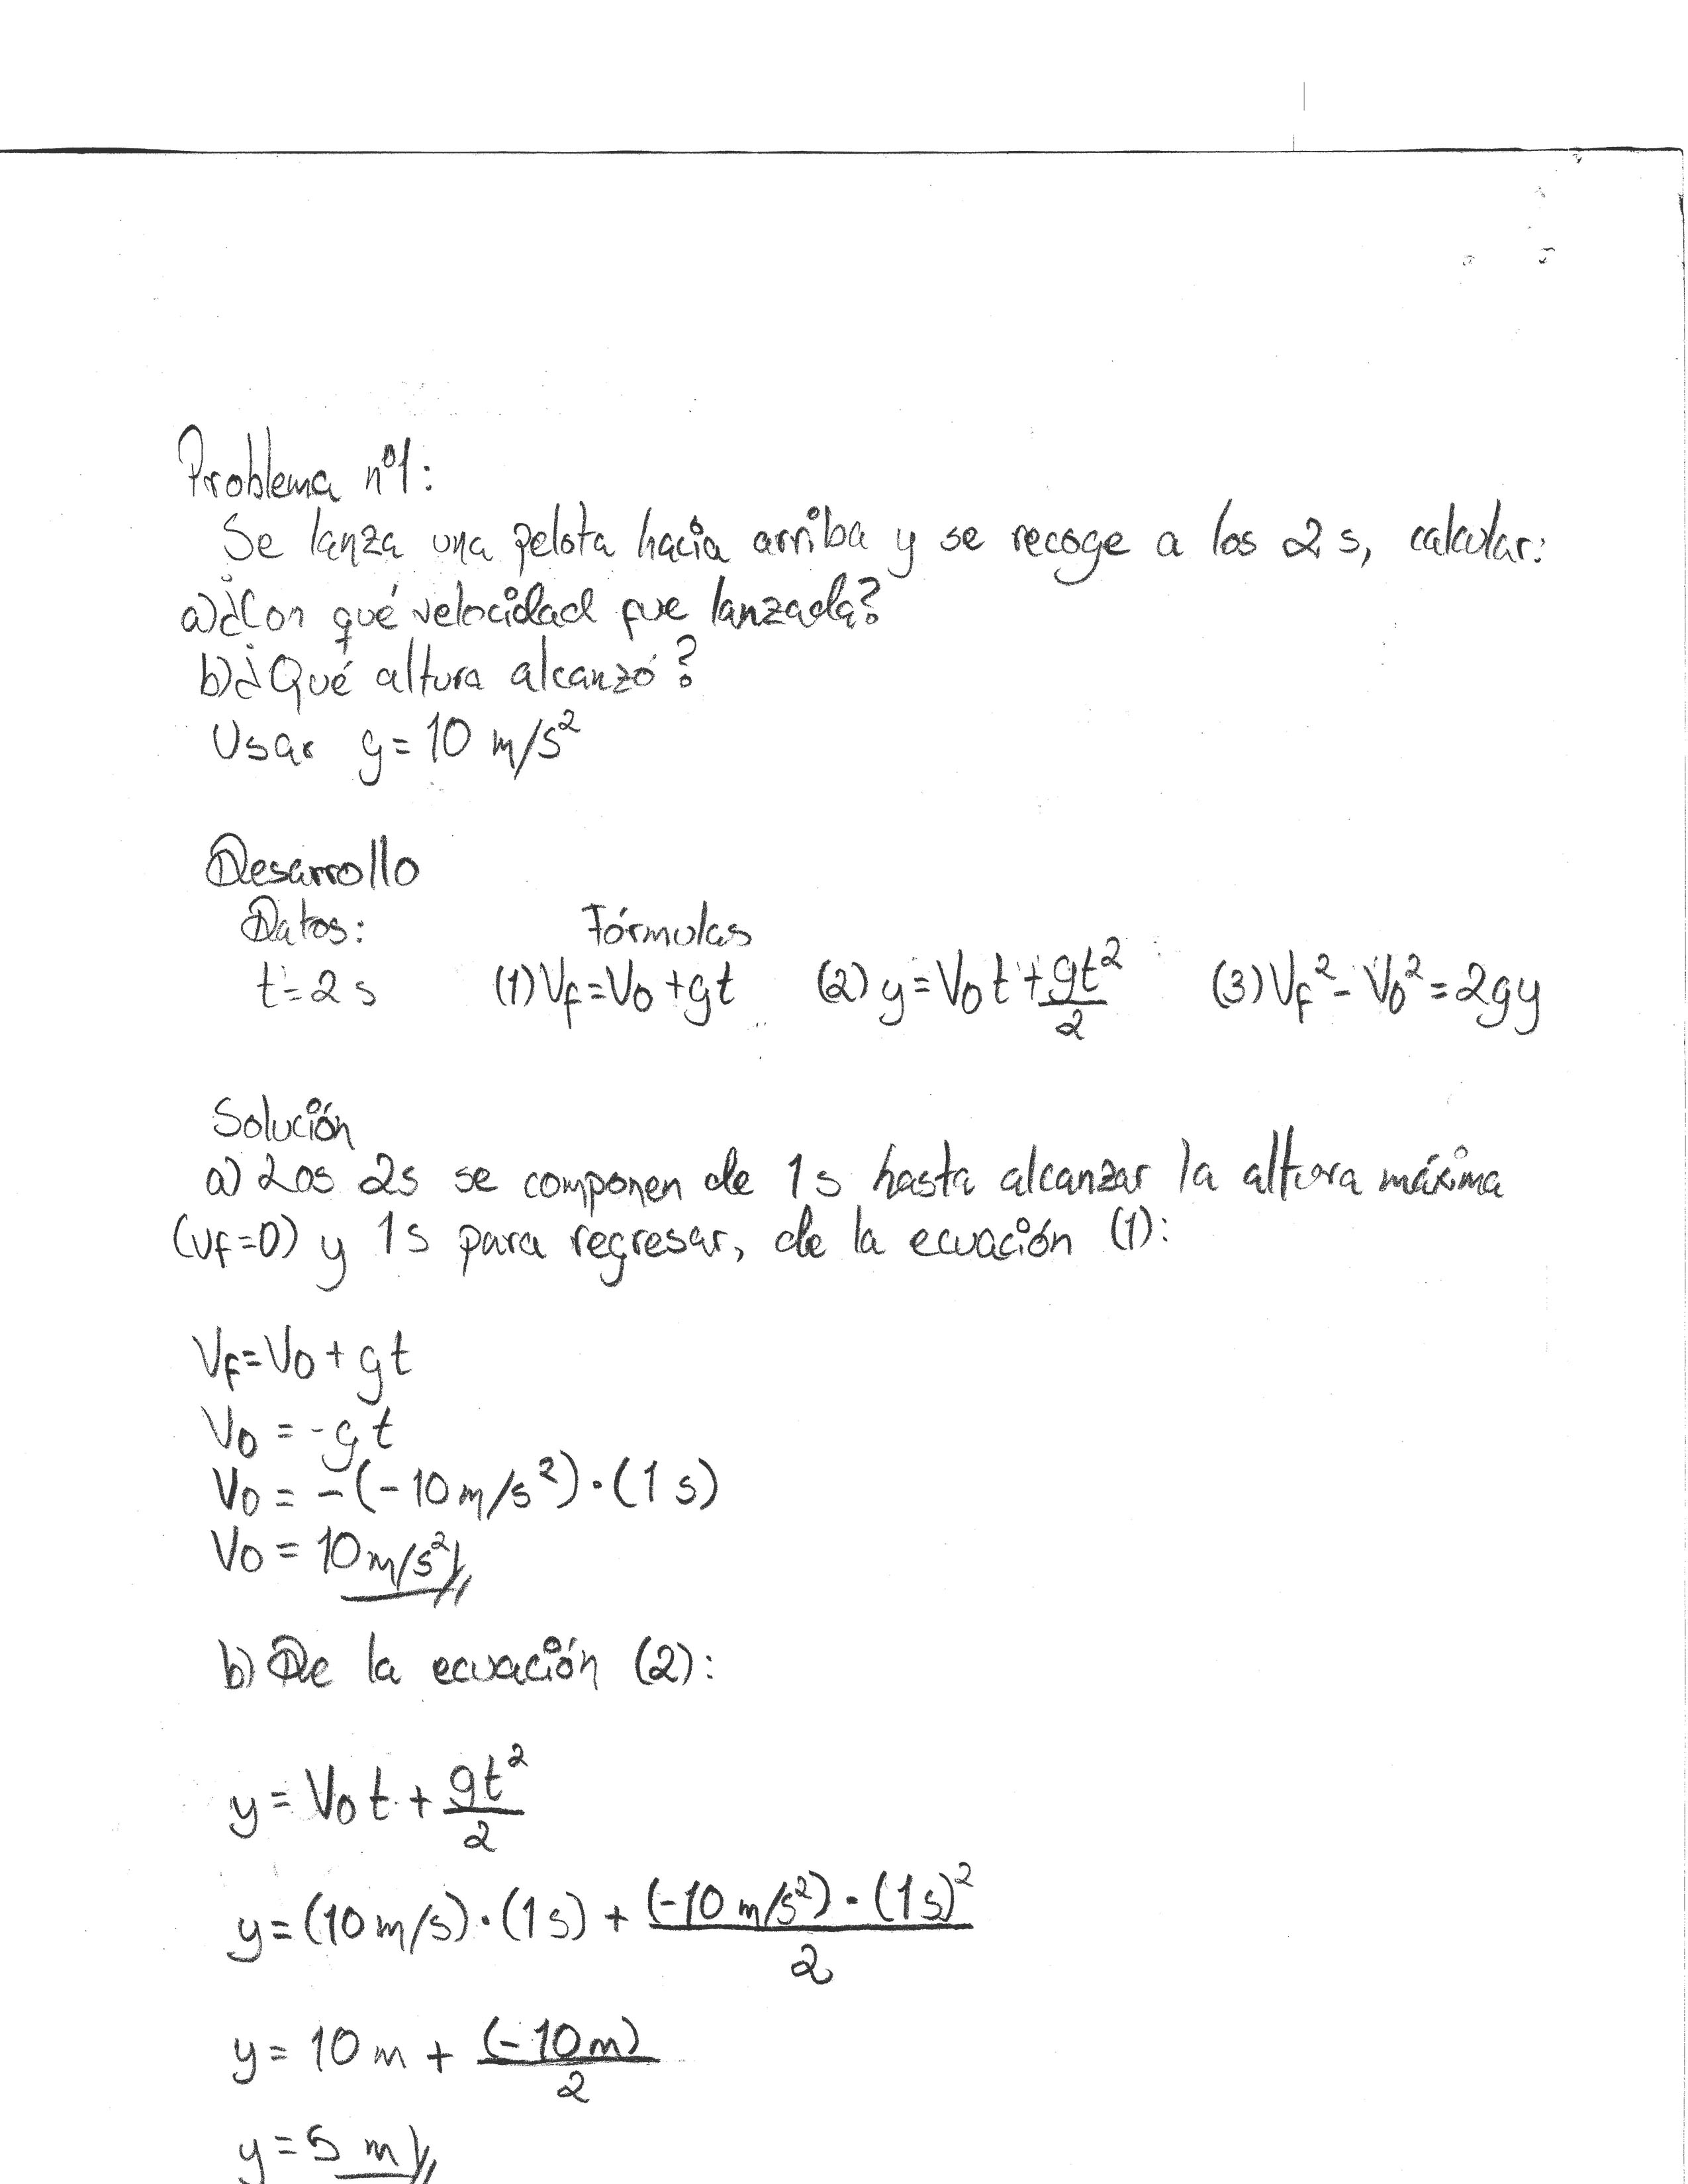 Problema nº1:
Se lanza una pelota hacia arriba y se recoge a los 2 s, calcular:
a) ¿Con qué velocidad fue lanzada?
b) ¿Qué altura alcanzó?
Usar g = 10 m/s²
Desarrollo
Datos: Fórmulas
t = 2 s (1) Vf = V0 + gt (2) y = V0 t + gt²/2 (3) Vf² - V0² = 2gy
Solución
a) Los 2s se componen de 1 s hasta alcanzar la altura máxima
(vf=0) y 1 s para regresar, de la ecuación (1):
Vf = V0 + gt
V0 = -gt
V0 = -(-10 m/s²)·(1 s)
V0 = 10 m/s²
b) De la ecuación (2):
y = V0 t + gt²/2
y = (10 m/s)·(1 s) + (-10 m/s²)·(1 s)²/2
y = 10 m + (-10 m)/2
y = 5 m